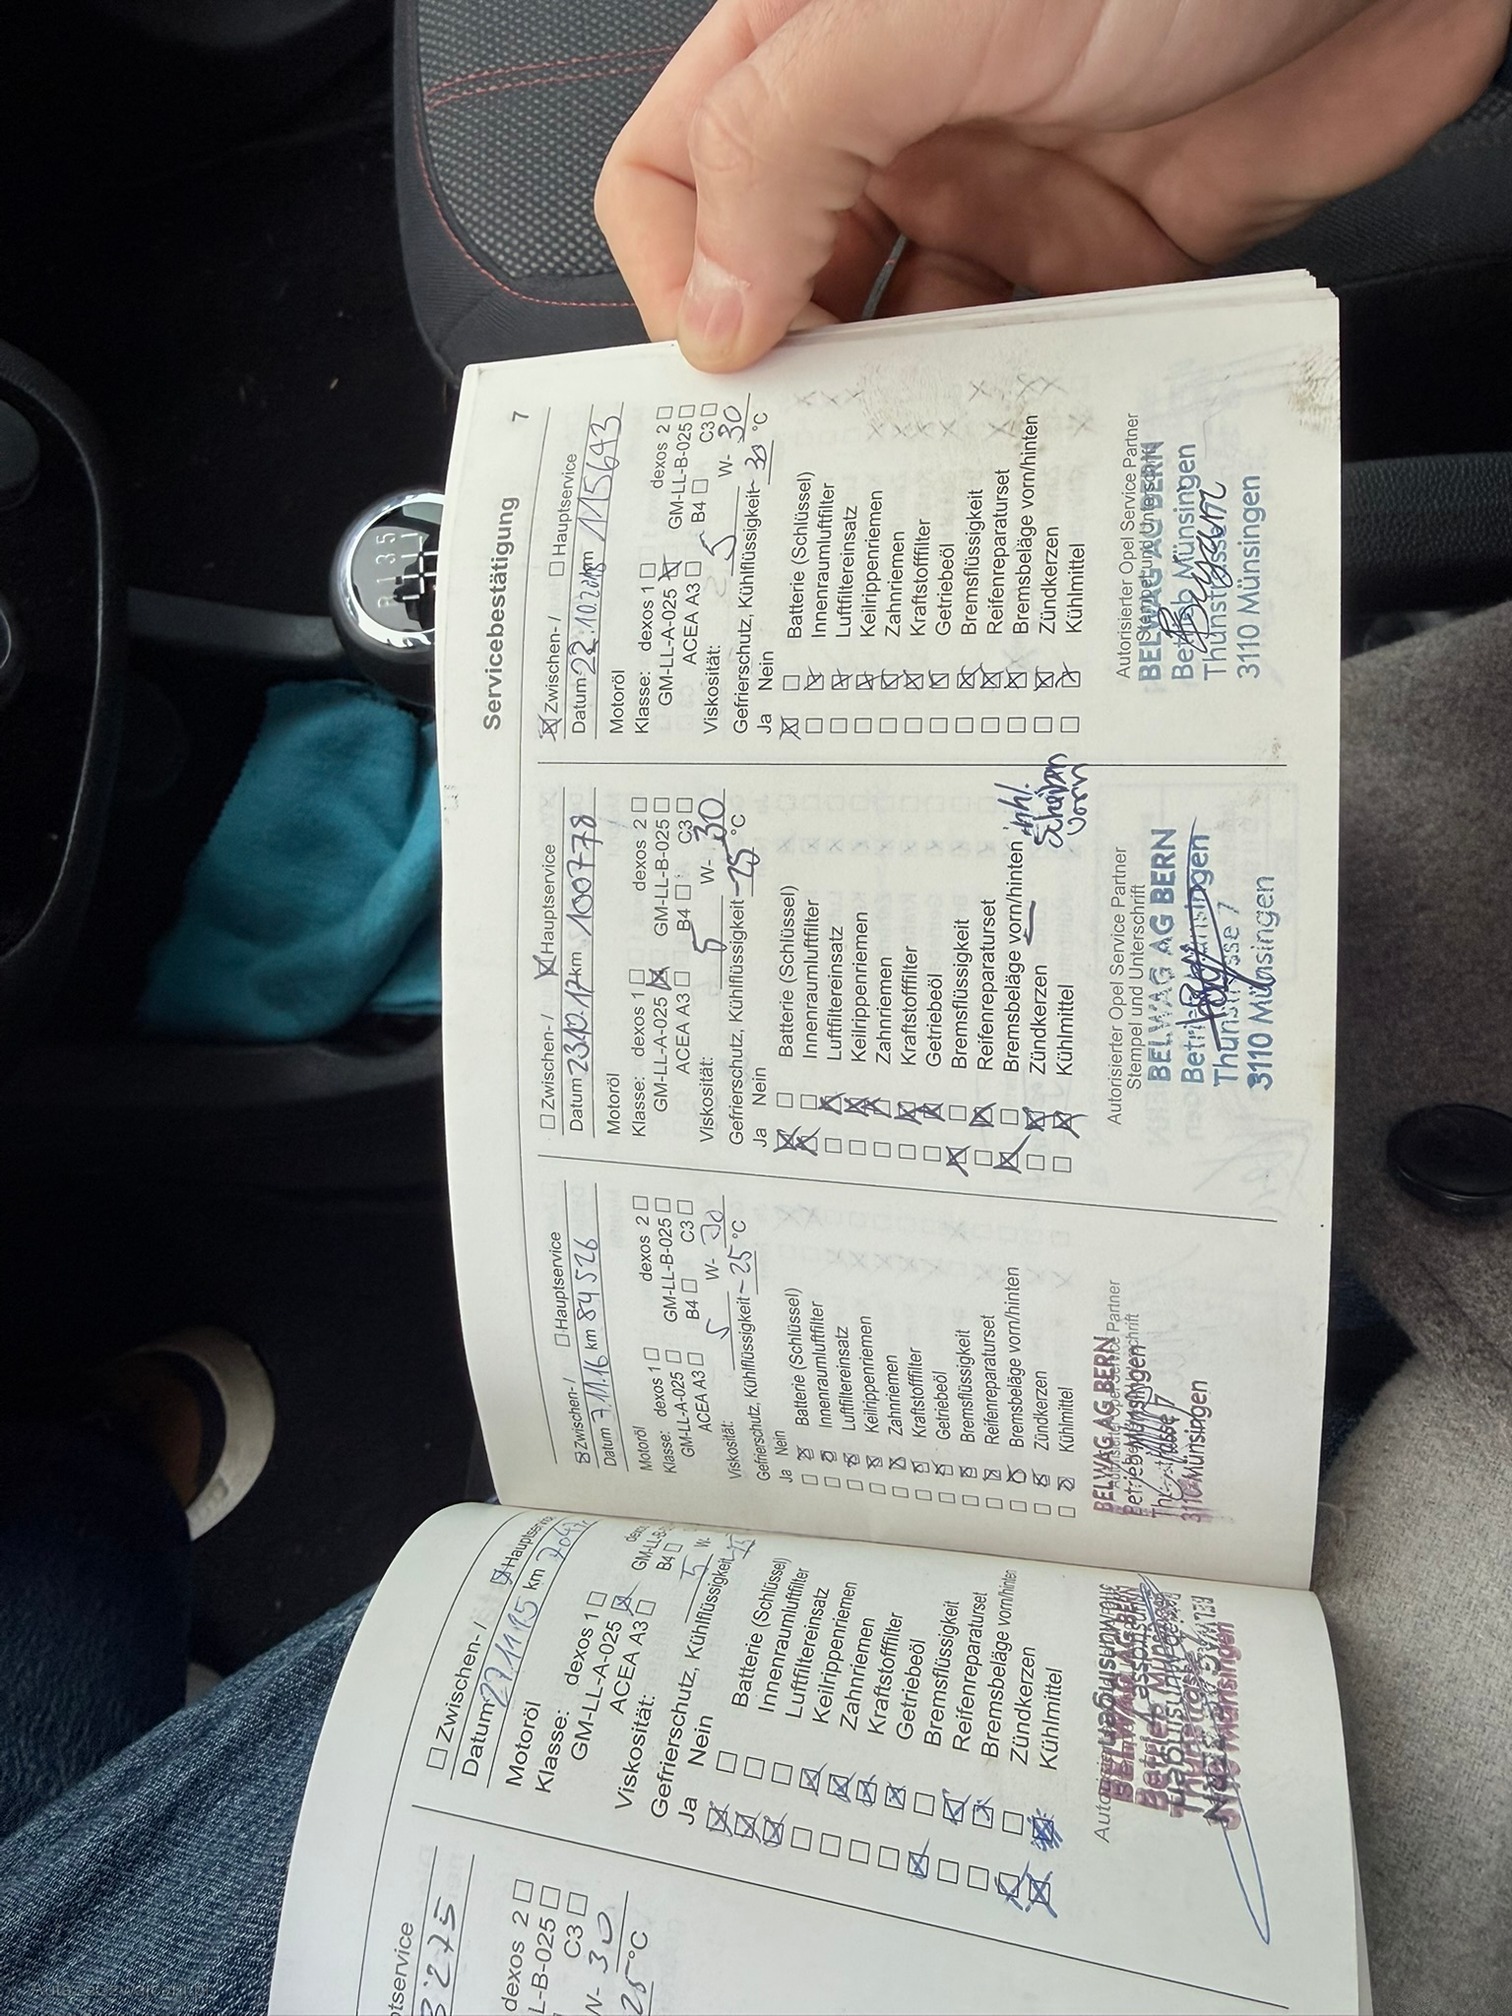 tservice
8275
dexos 2
L-B-025
C3
W- 30
25 °C
Zwischen- / Hauptservice
Datum 27.11.15 km
Motoröl
Klasse: dexos 1
GM-LL-A-025 GM-LL-B-
ACEA A3 B4
Viskosität: 5 W-
Gefrierschutz, Kühlflüssigkeit
Ja Nein
Batterie (Schlüssel)
Innenraumluftfilter
Luftfiltereinsatz
Keilrippenriemen
Zahnriemen
Kraftstofffilter
Getriebeöl
Bremsflüssigkeit
Reifenreparaturset
Bremsbeläge vorn/hinten
Zündkerzen
Kühlmittel
BELWAG AG BERN
Münsingen
Servicebestätigung 7
Zwischen- / Hauptservice
Datum 7.11.16 km 84 526
Motoröl
Klasse: dexos 1 dexos 2
GM-LL-A-025 GM-LL-B-025
ACEA A3 B4 C3
Viskosität: 5 W- 30
Gefrierschutz, Kühlflüssigkeit -25 °C
Ja Nein
Batterie (Schlüssel)
Innenraumluftfilter
Luftfiltereinsatz
Keilrippenriemen
Zahnriemen
Kraftstofffilter
Getriebeöl
Bremsflüssigkeit
Reifenreparaturset
Bremsbeläge vorn/hinten
Zündkerzen
Kühlmittel
BELWAG AG BERN
Betrieb Münsingen
3110 Münsingen
Zwischen- / Hauptservice
Datum 23.10.17 km 100778
Motoröl
Klasse: dexos 1 dexos 2
GM-LL-A-025 GM-LL-B-025
ACEA A3 B4 C3
Viskosität: 5 W- 30
Gefrierschutz, Kühlflüssigkeit -25 °C
Ja Nein
Batterie (Schlüssel)
Innenraumluftfilter
Luftfiltereinsatz
Keilrippenriemen
Zahnriemen
Kraftstofffilter
Getriebeöl
Bremsflüssigkeit
Reifenreparaturset
Bremsbeläge vorn/hinten inkl.
Scheiben
vorn
Zündkerzen
Kühlmittel
Autorisierter Opel Service Partner
Stempel und Unterschrift
BELWAG AG BERN
Betrieb Münsingen
Thunstrasse 7
3110 Münsingen
Zwischen- / Hauptservice
Datum 22.10.2018 km 115643
Motoröl
Klasse: dexos 1 dexos 2
GM-LL-A-025 GM-LL-B-025
ACEA A3 B4 C3
Viskosität: 5 W- 30
Gefrierschutz, Kühlflüssigkeit -30 °C
Ja Nein
Batterie (Schlüssel)
Innenraumluftfilter
Luftfiltereinsatz
Keilrippenriemen
Zahnriemen
Kraftstofffilter
Getriebeöl
Bremsflüssigkeit
Reifenreparaturset
Bremsbeläge vorn/hinten
Zündkerzen
Kühlmittel
Autorisierter Opel Service Partner
Stempel und Unterschrift
BELWAG AG BERN
Betrieb Münsingen
Thunstrasse 7
3110 Münsingen
R 1 3 5